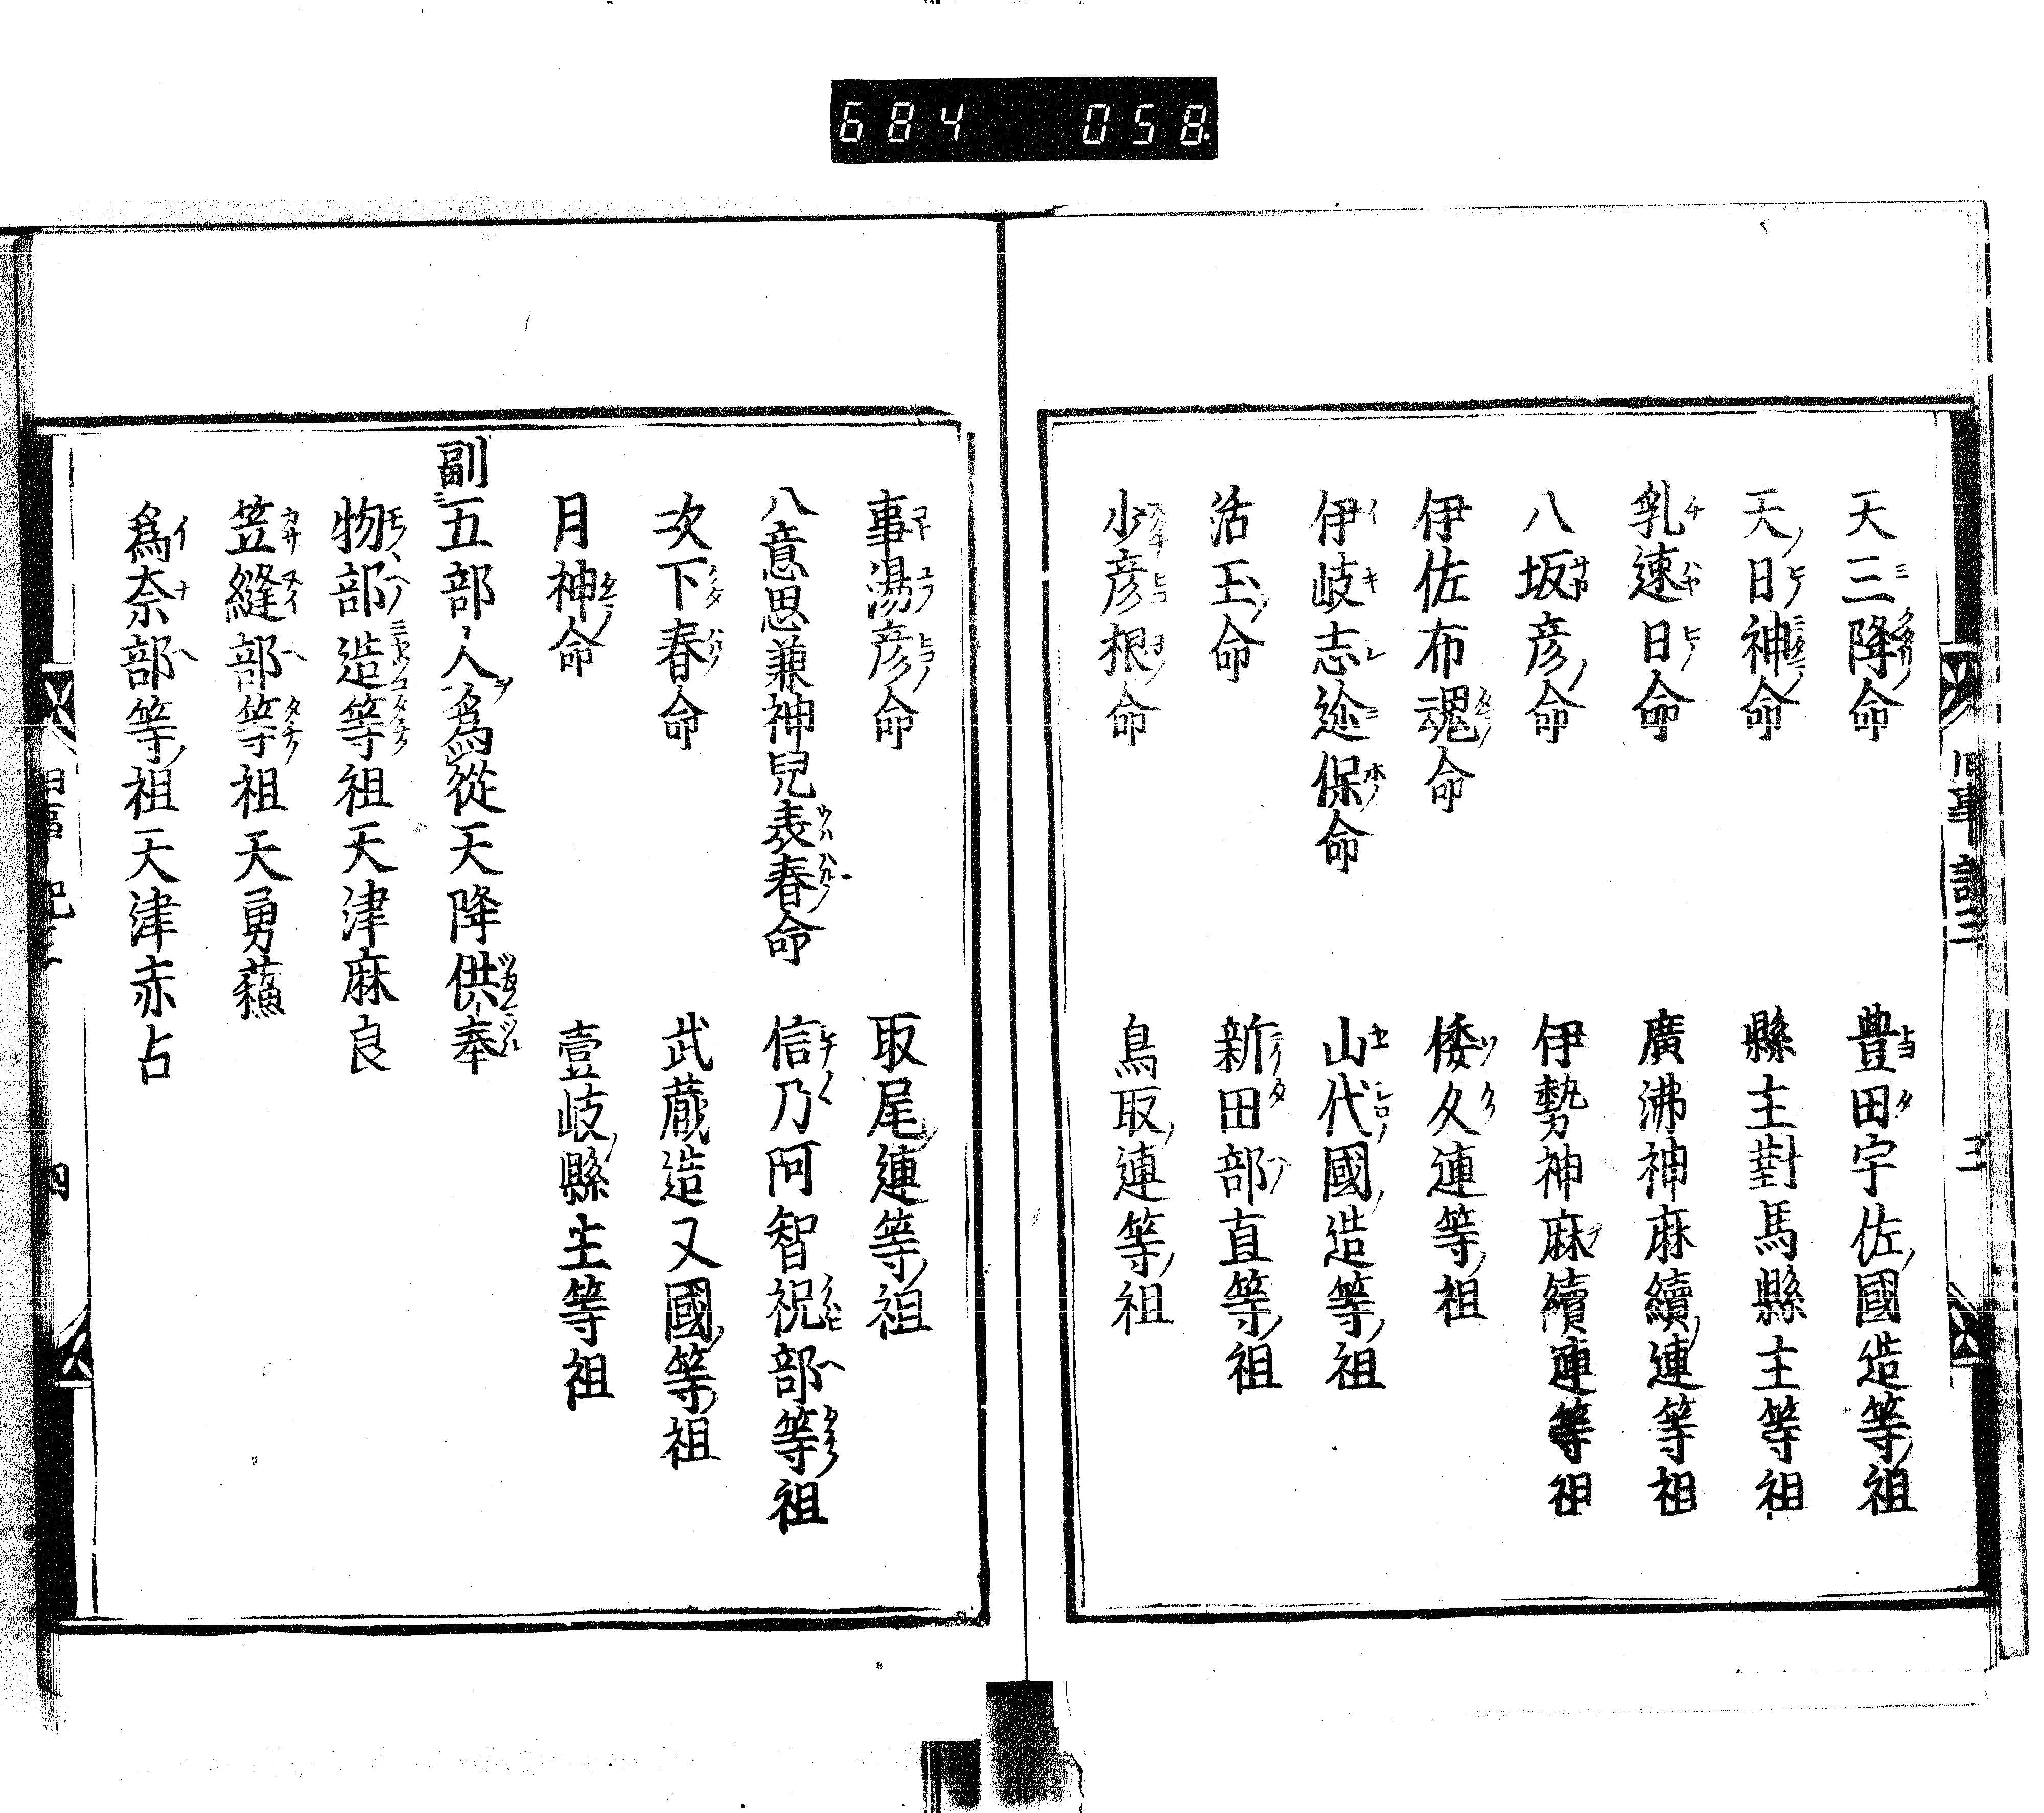 684 058
天三降命 豊田宇佐國造等祖
天日神命 縣主對馬縣主等祖
乳速日命 廣沸神麻續連等祖
八坂彦命 伊勢神麻續連等祖
伊佐布魂命 倭久連等祖
伊岐志迩保命 山代國造等祖
活玉命 新田部直等祖
少彦根命 鳥取連等祖
事湯彦命 取尾連等祖
八意思兼神兒表春命 信乃阿智祝部等祖
次下春命 武蔵造又國等祖
月神命 壹岐縣主等祖
副五部人為從天降供奉
物部造等祖天津麻良
笠縫部等祖天勇蘓
為奈部等祖天津赤占
旧事記三 三
四